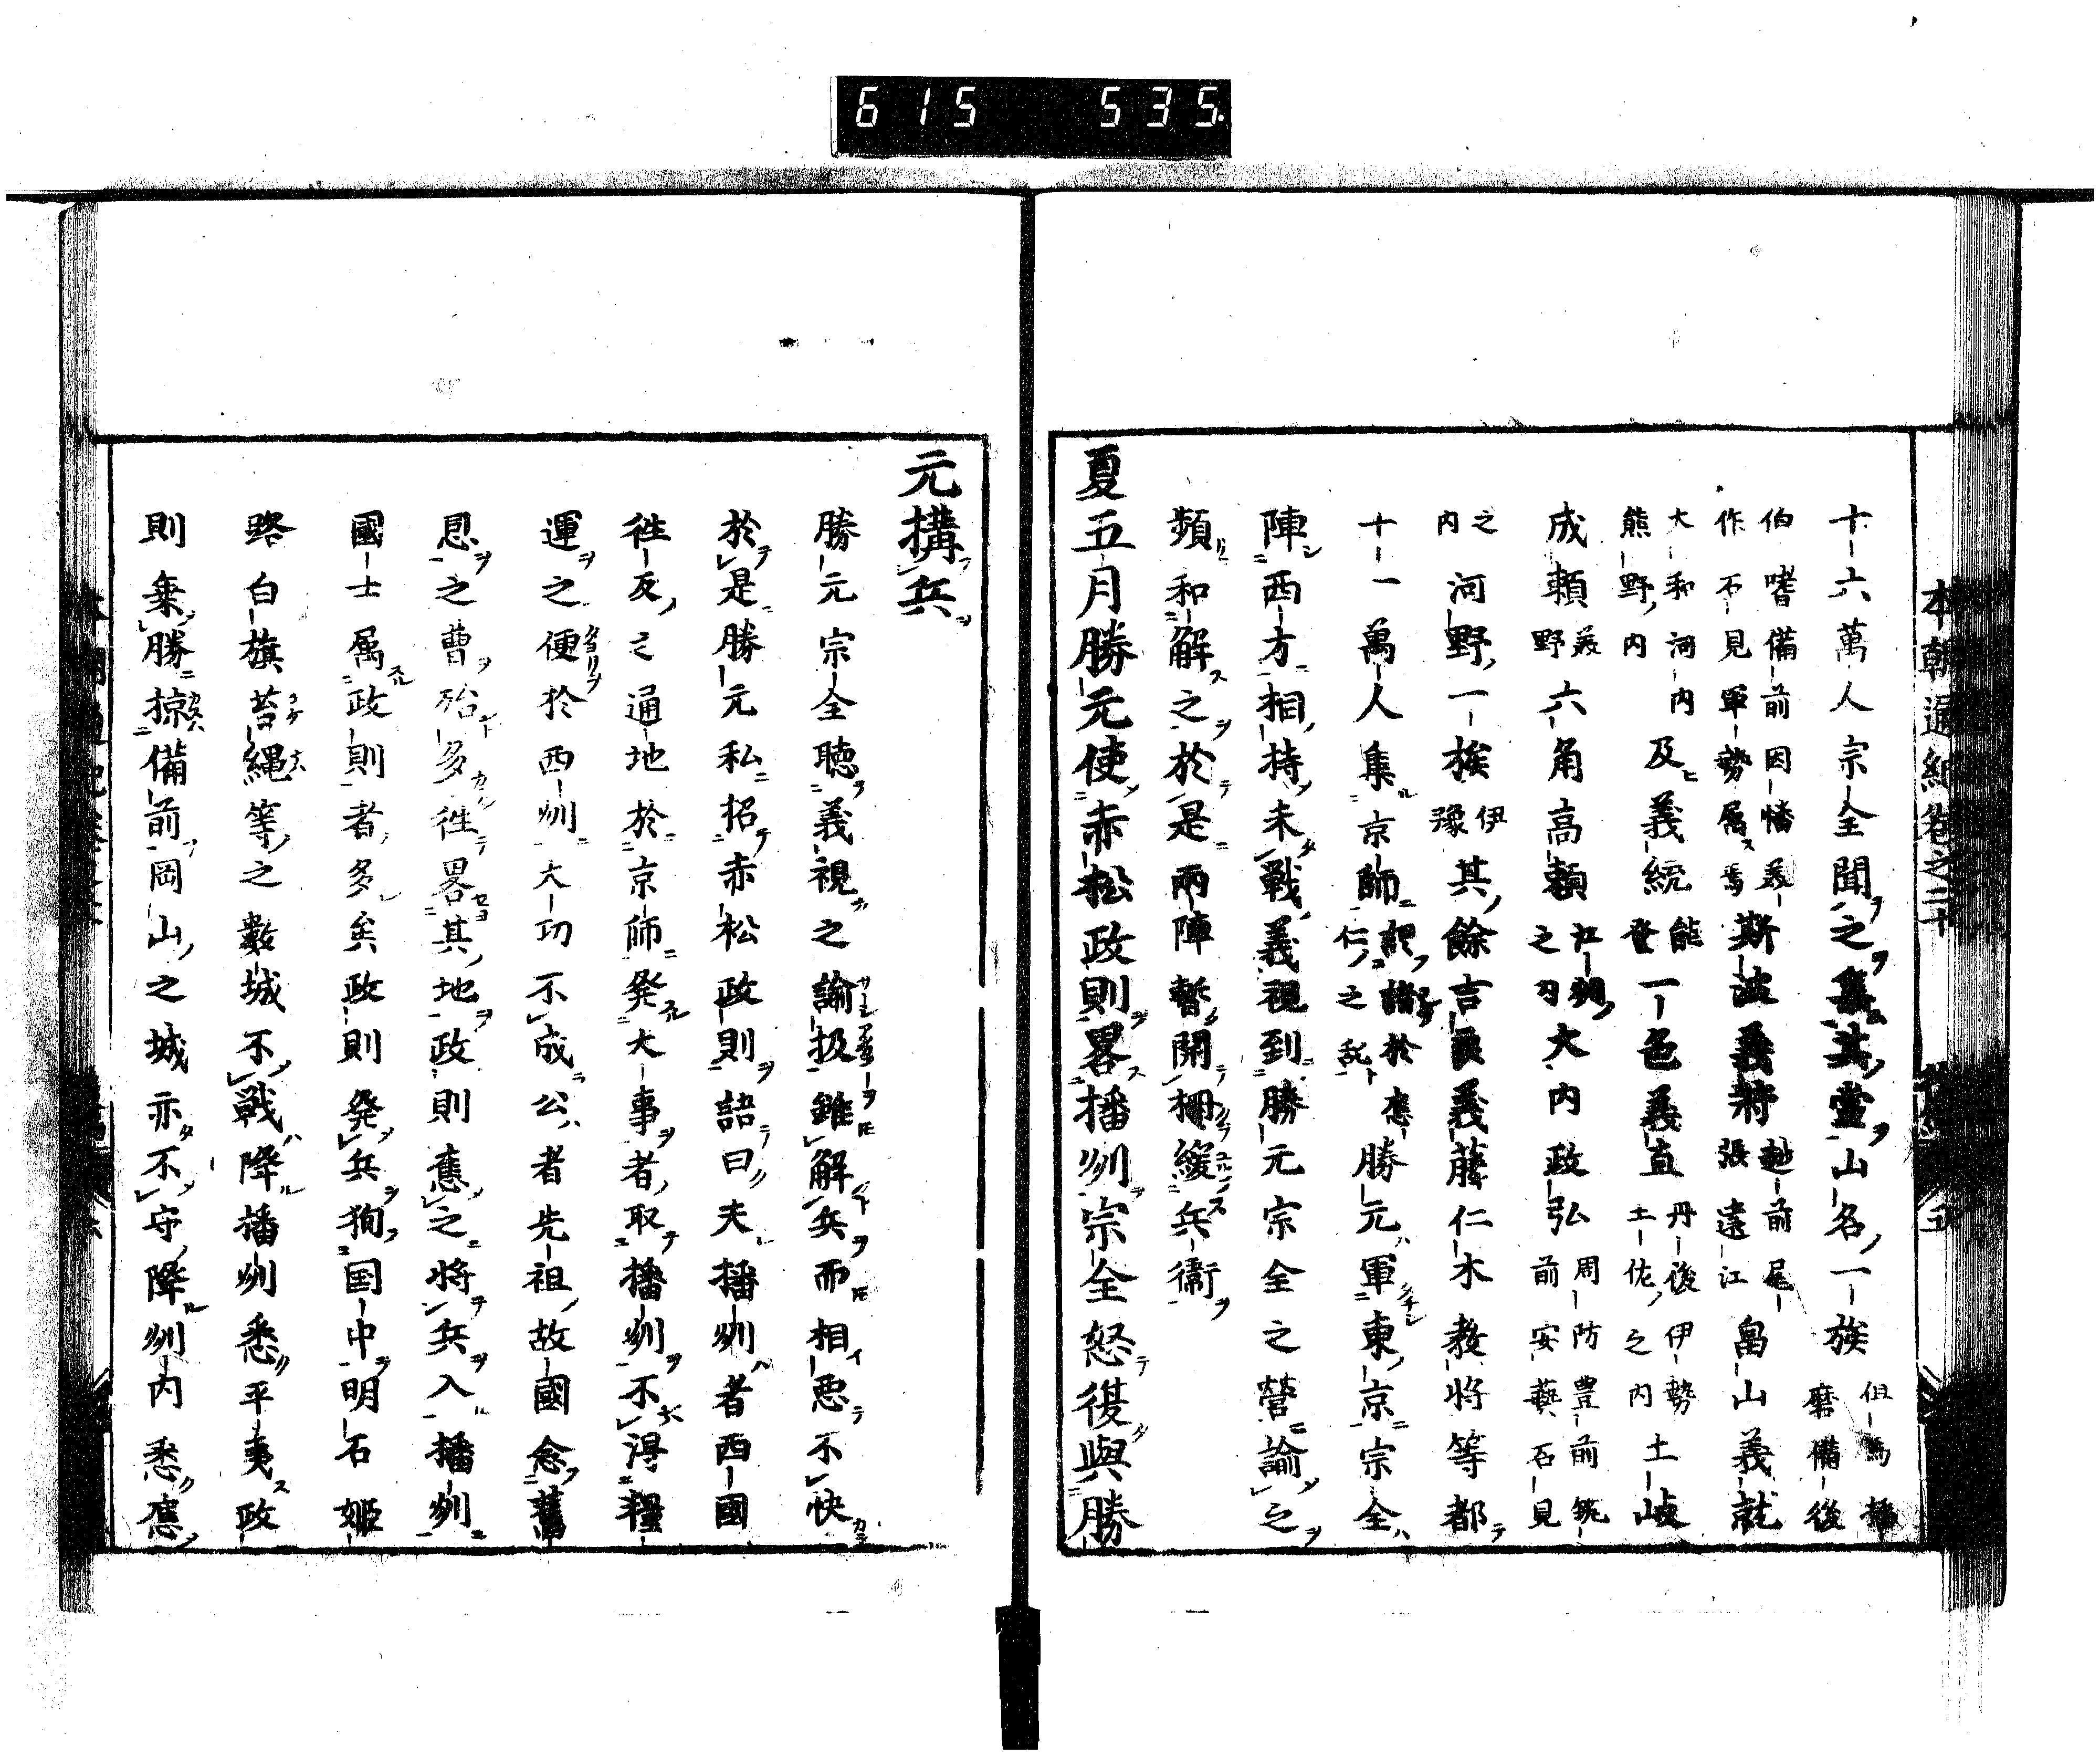 615 535
本朝通紀卷之二十 五
十六萬人宗全聞之集其黨山名一族 但馬播磨備後
伯耆備前因幡美作不見軍勢属焉 斯波義將 越前尾張遠江 畠山義就
大和河内熊野内 及義統 能登 一色義直 丹後伊勢土佐之内 土岐
成頼 美野 六角高頼 江州之内 大内政弘 周防豊前筑前安藝石見
之内 河野一族 伊豫 其餘吉良義藤仁木教將等都
十一萬人集京師 諺諸於應仁之乱 勝元軍東京宗全
陣西方相持未戰義視到勝元宗全之營諭之
頻和解之於是兩陣暫開柵緩兵衞
夏五月勝元使赤松政則畧播州宗全怒復與勝
元搆兵
勝元宗全聴義視之諭扱雖解兵而相悪不快
於是勝元私招赤松政則語曰夫播州者西國
徃反之通地於京師発大事者取播州不得糧
運之便於西州大功不成公者先祖故國念舊
恩之曹殆多徃畧其地政則應之將兵入播州
國士属政則者多矣政則発兵狥国中明石姫
路白旗苔縄等之數城不戰降播州悉平夷政
則乗勝掠備前岡山之城亦不守降州内悉應